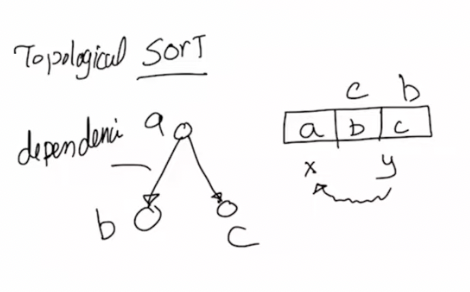 Topological SORT
dependenci
a
b
c
c b
a b c
x y